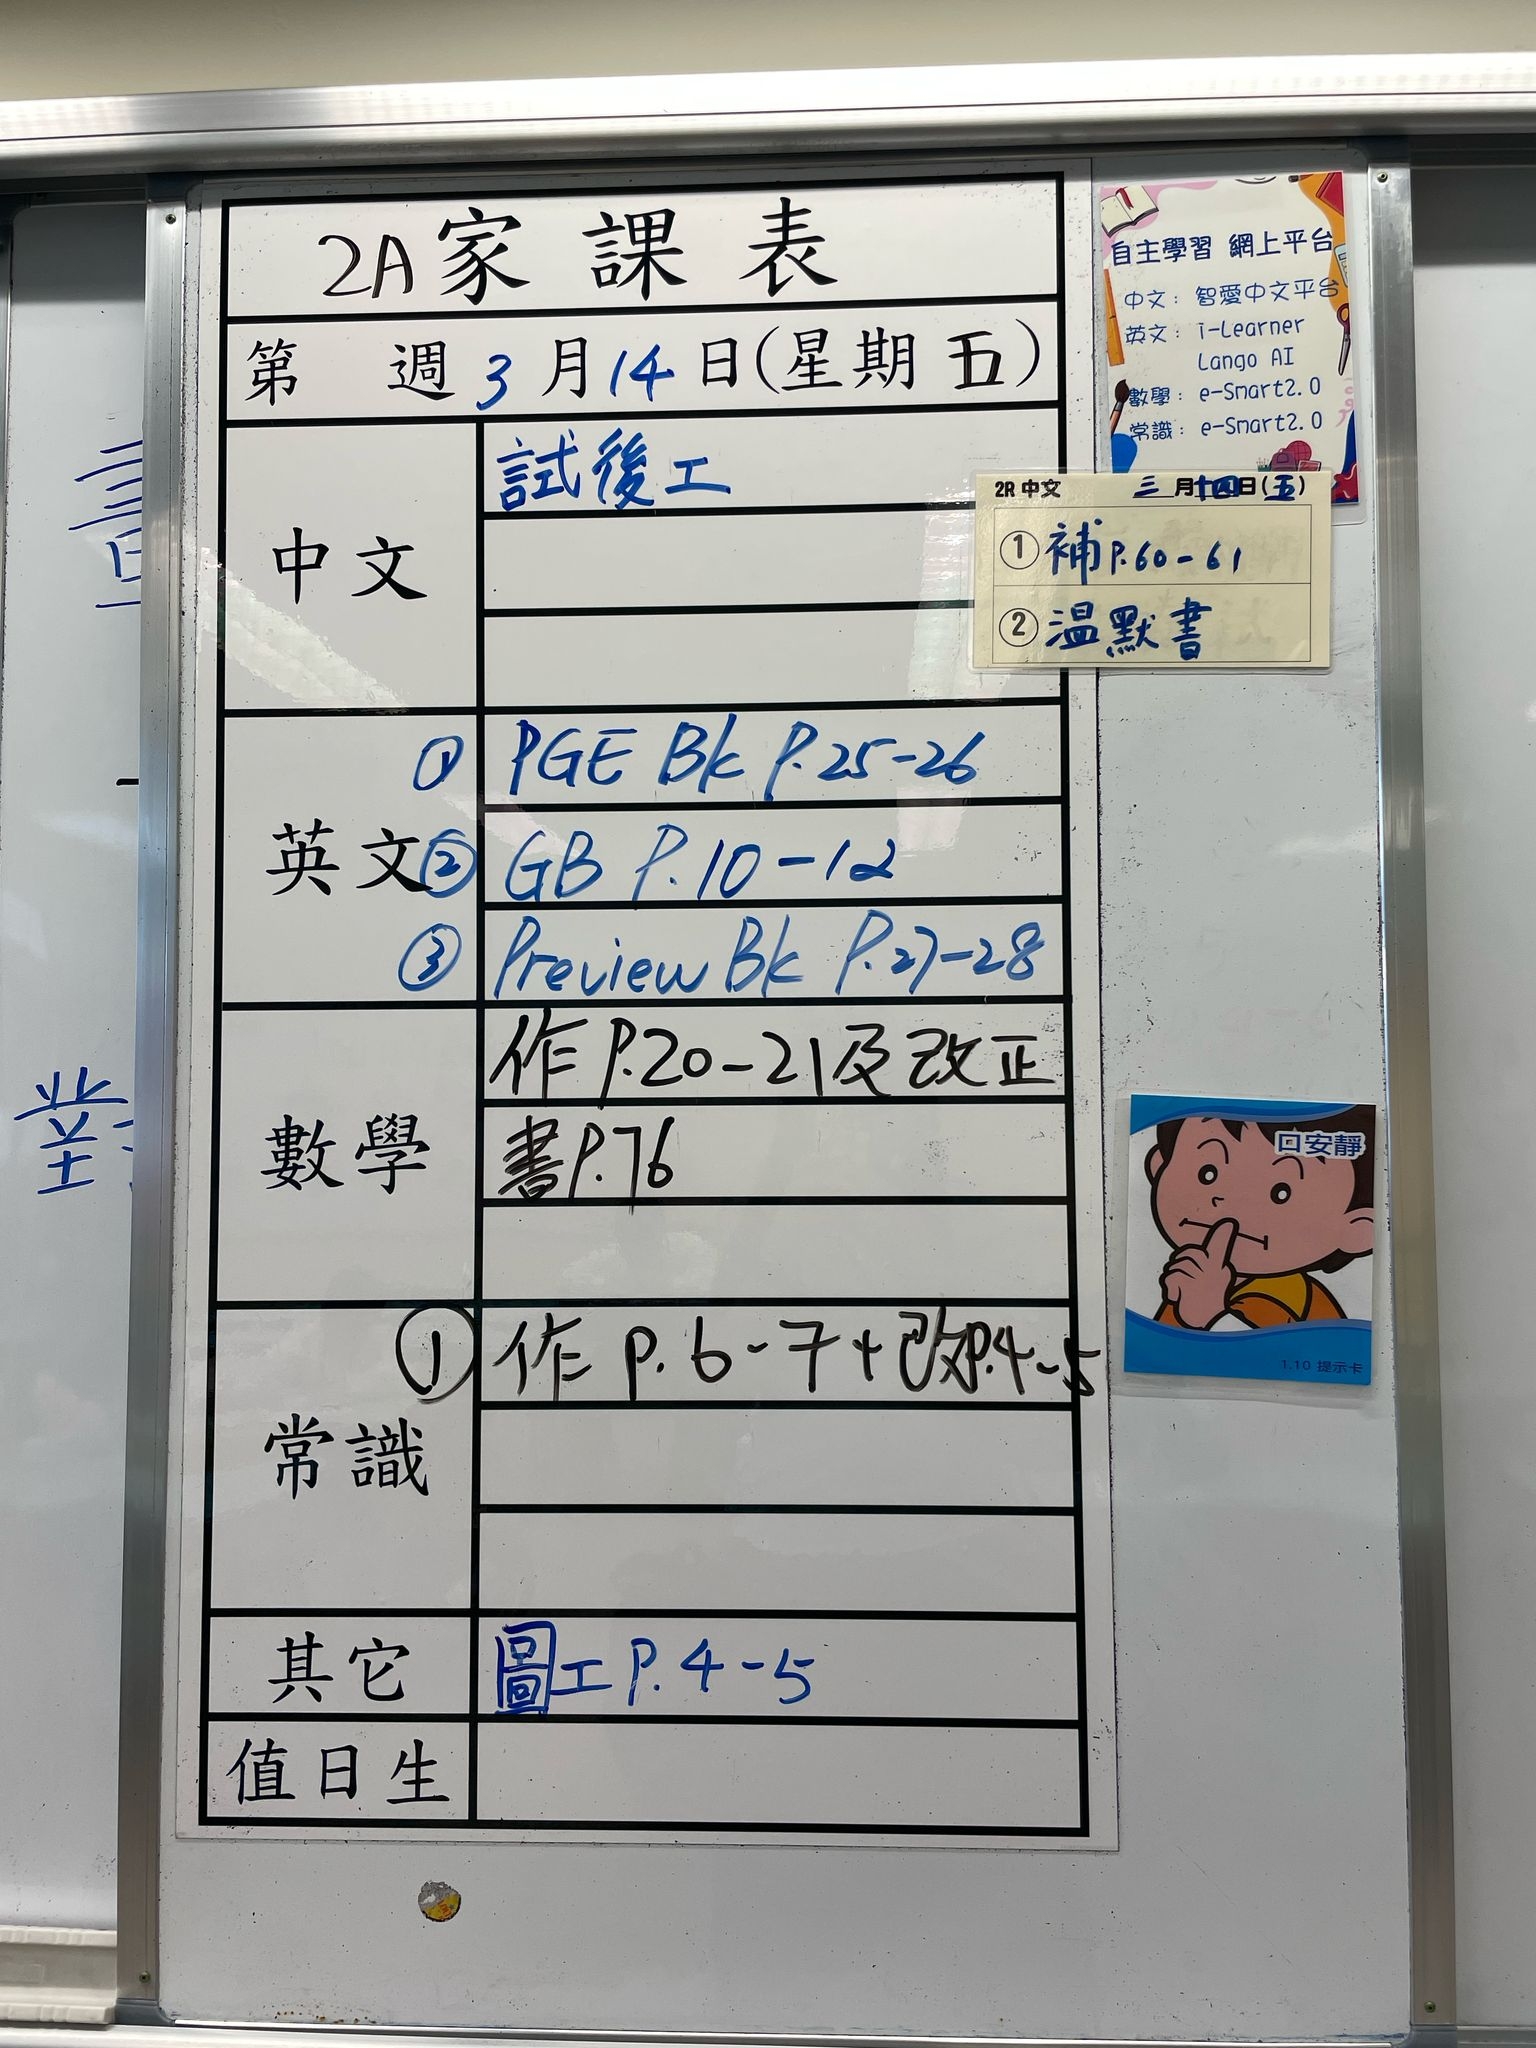 2A家課表
第 週 3月14日(星期五)
中文
試後工
英文
① PGE Bk P.25-26
② GB P.10-12
③ Preview Bk P.27-28
數學
作P.20-21及改正
書P.76
常識
① 作 p.6-7+改p.4-5
其它
圖工P.4-5
值日生
自主學習 網上平台
中文：智愛中文平台
英文：i-Learner
Lango AI
數學：e-Smart2.0
常識：e-Smart2.0
2R 中文 三月十四日(五)
① 補P.60-61
② 温默書
口安靜
1.10 提示卡